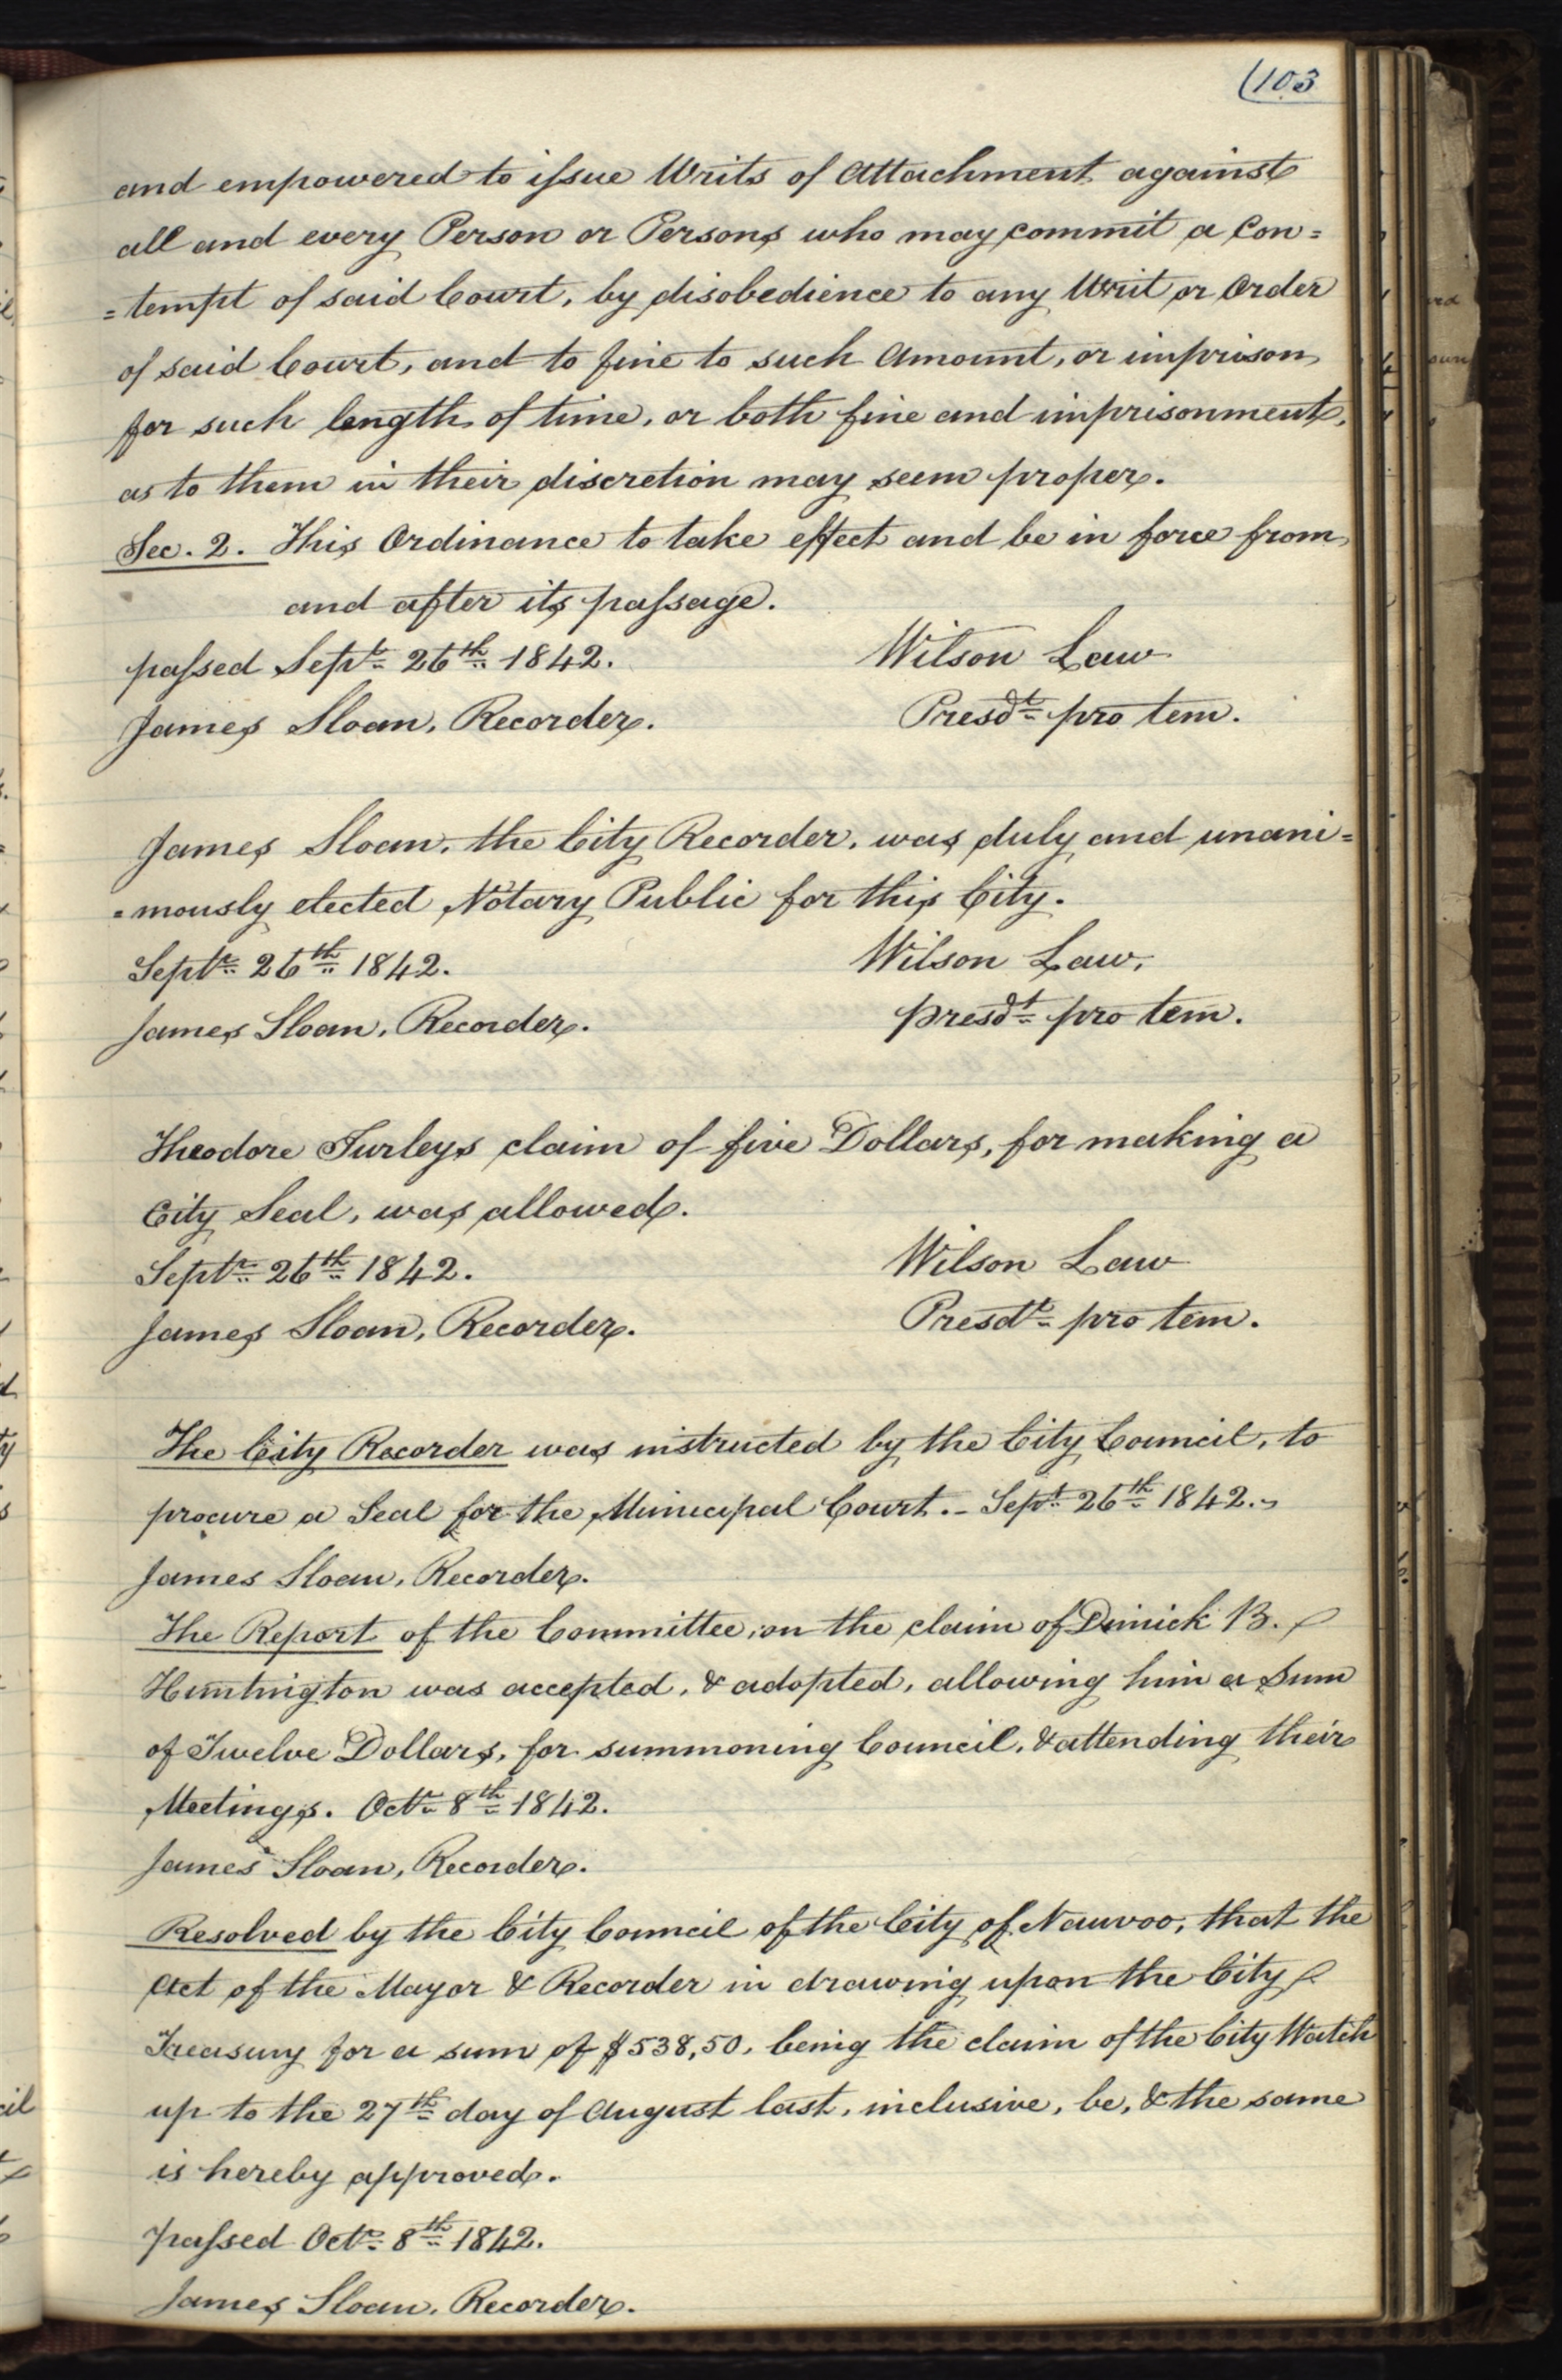 (103
and empowered to issue Writs of Attachment against
all and every Person or Persons who may commit a Con=
=tempt of said Court, by disobedience to any Writ or Order
of said Court, and to fine to such Amount, or imprison
for such length of time, or both fine and imprisonment,
as to them in their discretion may seem proper.
Sec. 2. This Ordinance to take effect and be in force from
and after its passage.
passed Septr. 26th. 1842. Wilson Law
James Sloan, Recorder. Presdt. pro tem.
James Sloan, the City Recorder, was duly and unani=
=mously elected Notary Public for this City.
Septr. 26th. 1842. Wilson Law,
James Sloan, Recorder. presdt. pro tem.
Theodore Turleys claim of five Dollars, for making a
City Seal, was allowed.
Septr. 26th. 1842. Wilson Law
James Sloan, Recorder. Presdt. pro tem.
The City Recorder was instructed by the City Council, to
procure a Seal for the Municipal Court.- Sept. 26th. 1842.
James Sloan, Recorder.
The Report of the Committee, on the claim of Dimick B.
Huntington was accepted, & adopted, allowing him a Sum
of Twelve Dollars, for summoning Council, & attending their
Meetings. Octr. 8th. 1842.
James Sloan, Recorder.
Resolved by the City Council of the City of Nauvoo, that the
Act of the Mayor & Recorder in drawing upon the City
Treasury for a sum of $538,50, being the claim of the City Watch
up to the 27th. day of August last, inclusive, be, & the same
is hereby approved.
passed Octr. 8th. 1842.
James Sloan, Recorder.